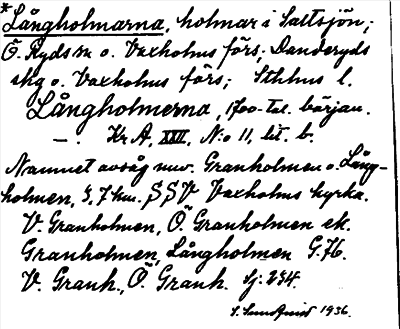 *Långholmarna, holmar i Saltsjön;
Ö. Ryds sn o. Vaxholms förs; Danderyds
skg o. Vaxholms förs; Sthlms l.
Långholmerna, 1700-tal. början.
—. Kr A, XXII, N:o 11, lit. b.
Namnet avsåg nuv. Granholmen o. Lång-
holmen, 3,7 km. SSV Vaxholms kyrka.
V. Granholmen, Ö Granholmen ek.
Granholmen, Långholmen G.76.
V. Granh., Ö. Granh. Sj: 234.
S. Sundquist 1936.